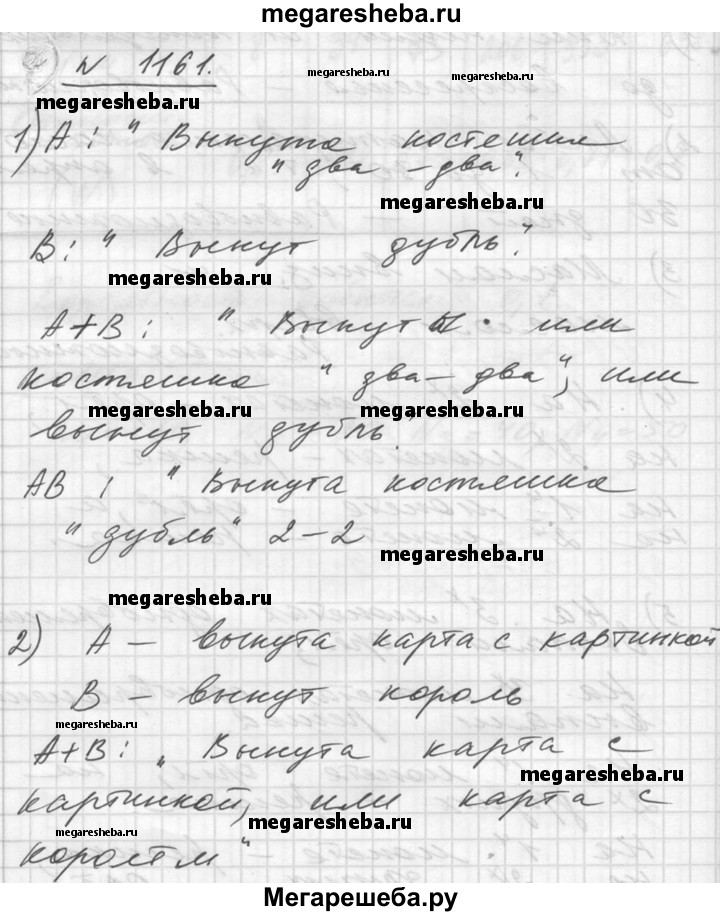 megaresheba.ru
№ 1161.
megaresheba.ru
megaresheba.ru
megaresheba.ru
1) A: " Вынута костешка
" два - два".
megaresheba.ru
B: " Вынут дубль".
megaresheba.ru
megaresheba.ru
A+B: " Вынут или
костяшка " два - два", или
megaresheba.ru megaresheba.ru
вынут дубль.
AB : " Вынута костяшка
" дубль" 2-2
megaresheba.ru
megaresheba.ru
2) A - вынута карта с картинкой
B - вынут король
megaresheba.ru
megaresheba.ru
A+B: „ Вынута карта с
megaresheba.ru
картинкой, или карта с
megaresheba.ru
megaresheba.ru
"
Мегарешеба.ру